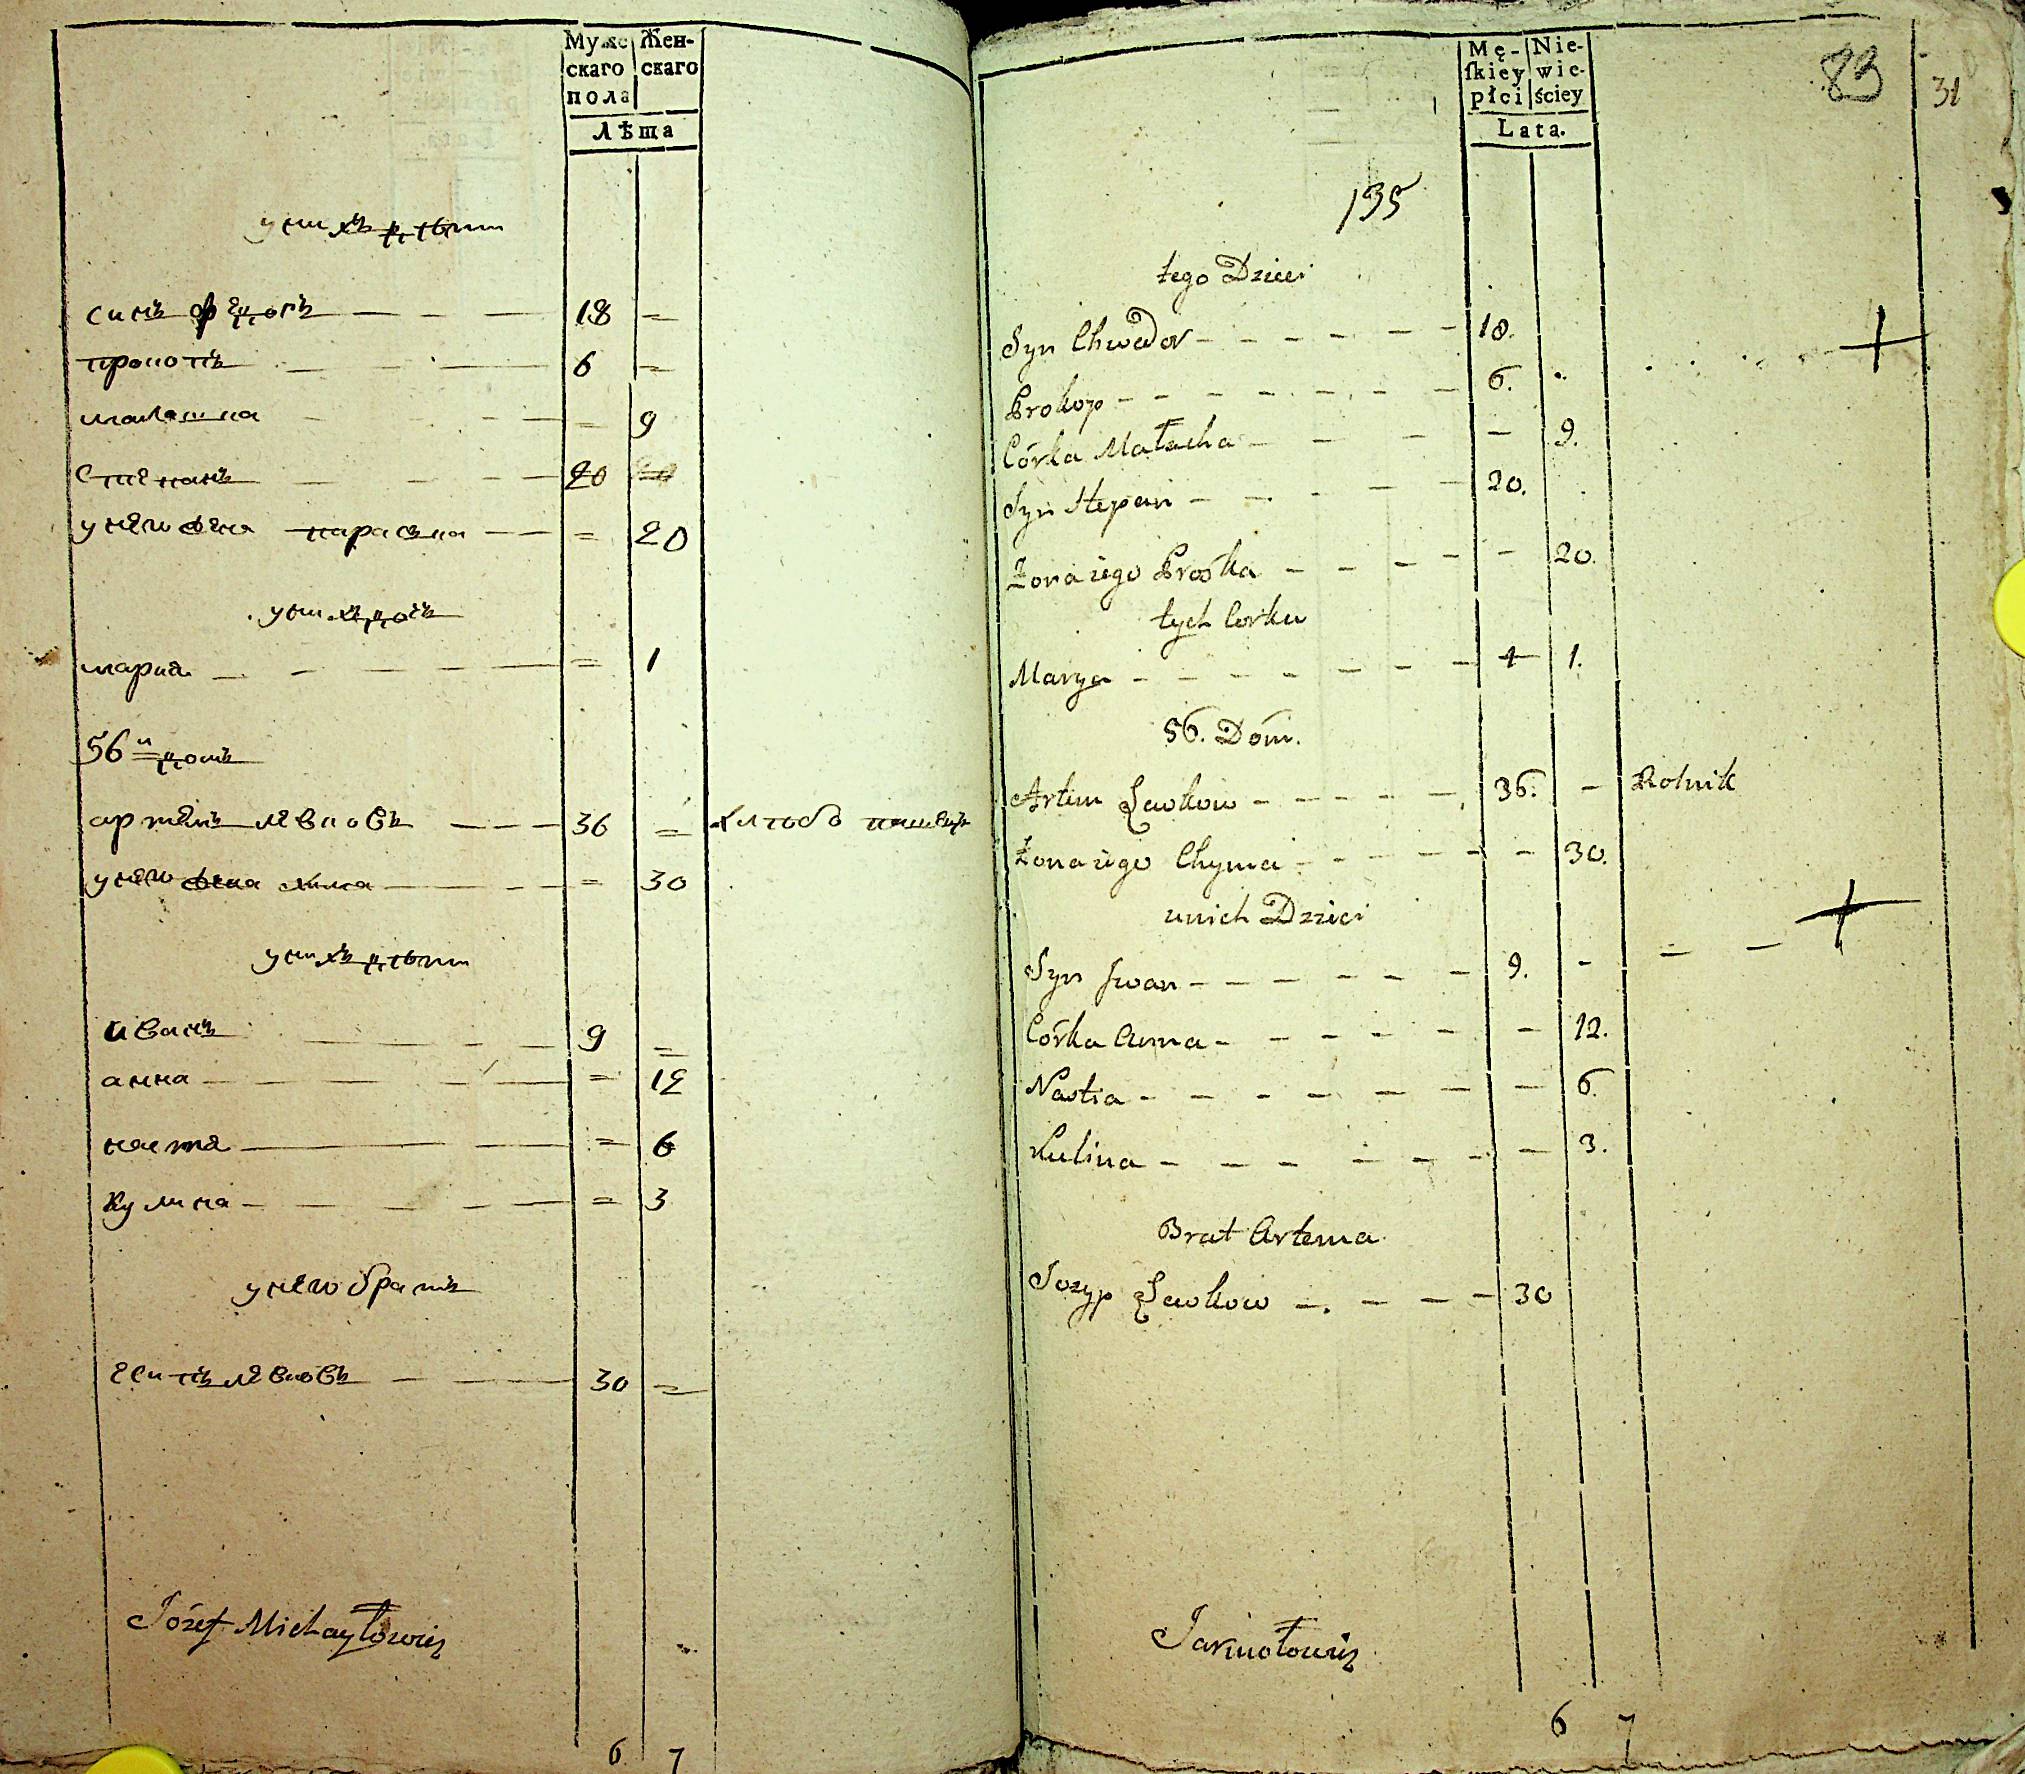 Мужескаго пола Женскаго
Лѣта
у них дѣти
синъ Федоръ — — — 18 =
прокопъ — — — 6 =
малашка — — — = 9
Степанъ — — — 20
у него жена параска — — = 20
у них доч
мариа — — — = 1
56й домъ
артемъ левковъ — — — 36 = хлѣбо пашецъ
у него жена хима — — — = 30
у них дѣти
иванъ — — — 9 =
анна — — — = 12
настя — — — = 6
кулина — — — = 3
у него братъ
есипъ левковъ — — — 30 =
Józef Michayłowicz
6 7
Męſkiey płci Niewieściey
Lata.
83 31
195
tego Dzieci
Syn Chwedor — — — 18.
Prokop — — — 6.
Córka Małacha — — — 9.
Syn Stepan — — — 20.
Żona iego Prośka — — — 20.
tych Corka
Marya — — — 1.
56. Dom.
Artem Lewkow — — — 36. — Rolnik
Żona iego Chyma — — — 30.
u nich Dzieci
Syn Jwan — — — 9. —
Córka Anna — — — 12.
Nastia — — — 6.
Kulina — — — 3.
Brat Artema
Jozyp Lewkow — — — 30
Jarmołowicz
6 7